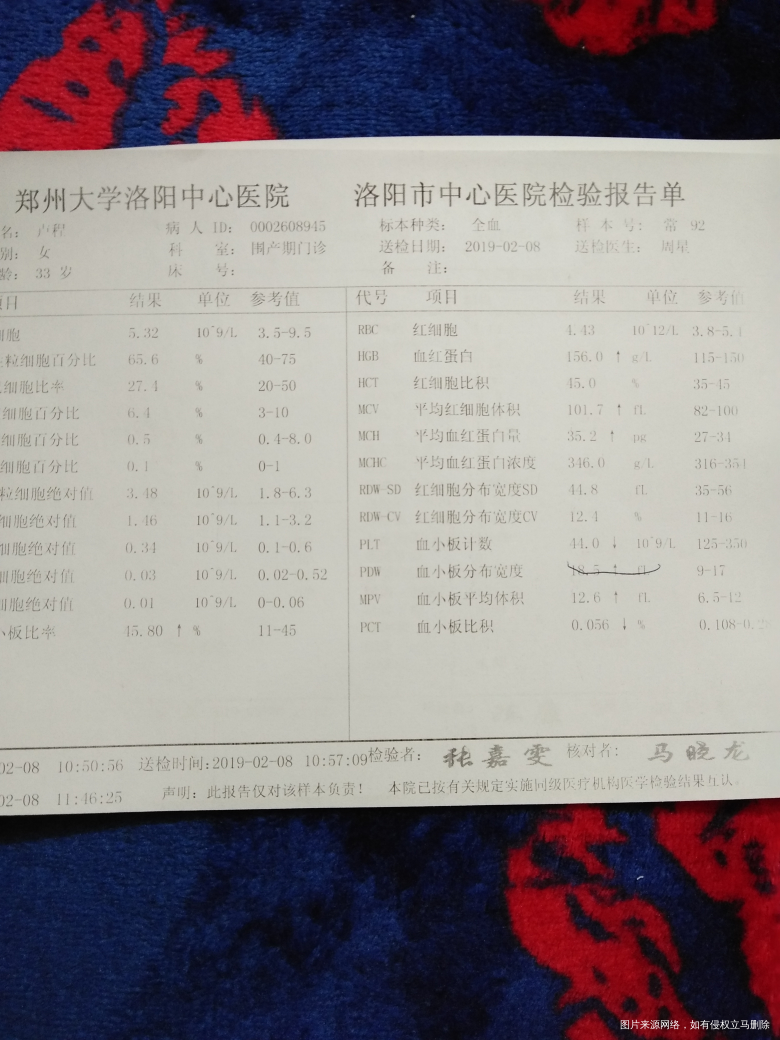 郑州大学洛阳中心医院 洛阳市中心医院检验报告单
名： 卢程 病 人 ID： 0002608945 标本种类： 全血 样 本 号： 常 92
别： 女 科 室： 围产期门诊 送检日期： 2019-02-08 送检医生： 周星
龄： 33 岁 床 号： 备 注：
项目 结果 单位 参考值 代号 项目 结果 单位 参考值
细胞 5.32 10^9/L 3.5-9.5 RBC 红细胞 4.43 10^12/L 3.8-5.1
粒细胞百分比 65.6 % 40-75 HGB 血红蛋白 156.0 ↑ g/L 115-150
细胞比率 27.4 % 20-50 HCT 红细胞比积 45.0 % 35-45
细胞百分比 6.4 % 3-10 MCV 平均红细胞体积 101.7 ↑ fL 82-100
细胞百分比 0.5 % 0.4-8.0 MCH 平均血红蛋白量 35.2 ↑ pg 27-34
细胞百分比 0.1 % 0-1 MCHC 平均血红蛋白浓度 346.0 g/L 316-354
粒细胞绝对值 3.48 10^9/L 1.8-6.3 RDW-SD 红细胞分布宽度SD 44.8 fL 35-56
细胞绝对值 1.46 10^9/L 1.1-3.2 RDW-CV 红细胞分布宽度CV 12.4 % 11-16
细胞绝对值 0.34 10^9/L 0.1-0.6 PLT 血小板计数 44.0 ↓ 10^9/L 125-350
细胞绝对值 0.03 10^9/L 0.02-0.52 PDW 血小板分布宽度 18.5 ↑ fL 9-17
细胞绝对值 0.01 10^9/L 0-0.06 MPV 血小板平均体积 12.6 ↑ fL 6.5-12
小板比率 45.80 ↑ % 11-45 PCT 血小板比积 0.056 ↓ % 0.108-0.2
02-08 10:50:56 送检时间:2019-02-08 10:57:09 检验者： 张嘉雯 核对者： 马晓龙
02-08 11:46:25 声明：此报告仅对该样本负责！ 本院已按有关规定实施同级医疗机构医学检验结果互认。
图片来源网络，如有侵权立马删除